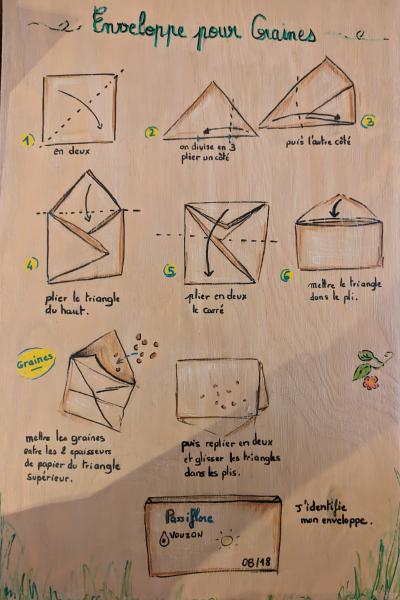 Enveloppe pour Graines
1)
en deux
2
on divise en 3
plier un côté
3
puis l'autre côté
4
plier le triangle
du haut.
5
plier en deux
le carré
6
mettre le triangle
dans le pli.
Graines
mettre les graines
entre les 2 épaisseurs
de papier du triangle
supérieur.
puis replier en deux
et glisser les triangles
dans les plis.
Passiflore
VOUZON
08/18
J'identifie
mon enveloppe.